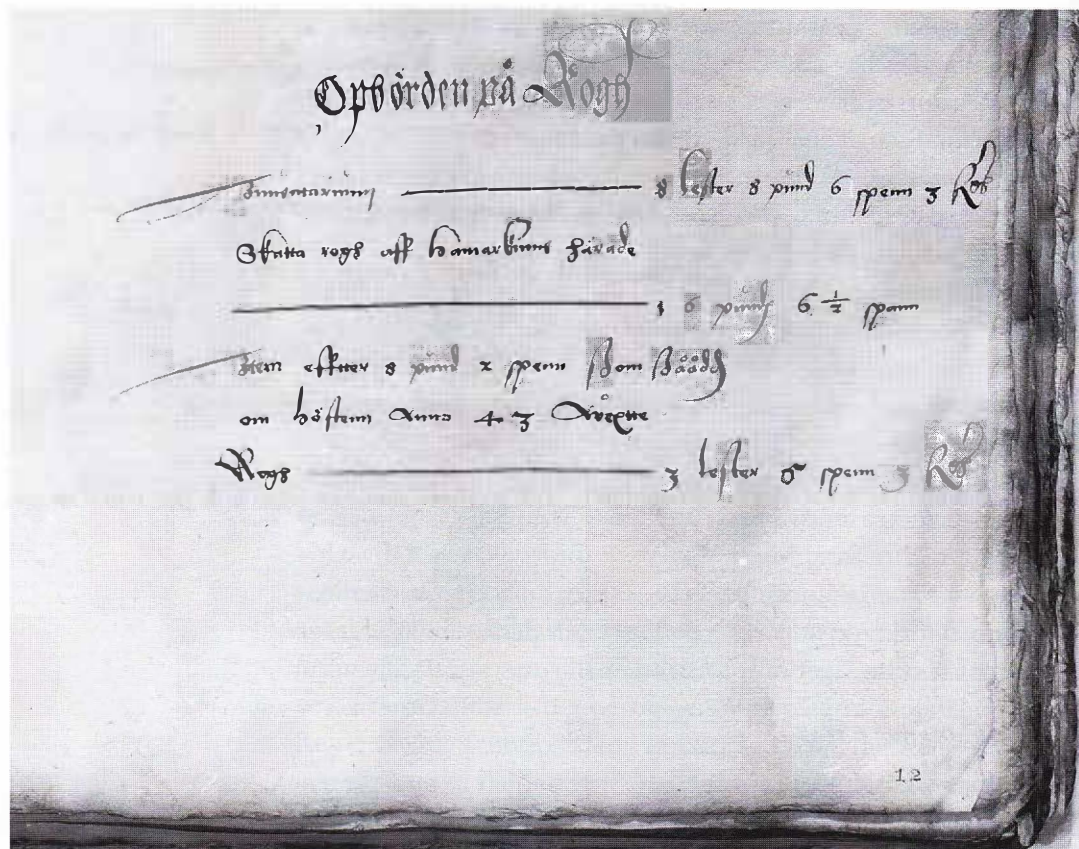 Opbörden på Rogh
Inuentarium 8 lester 8 pund 6 spenn 3
Skatta rogh aff hamarkinns härade
1 6 pund 6 1/2 spann
Item effther 8 pund 2 spenn som såådh
om höstenn Anno 43
Rogh 3 lester 5 spenn 3
12